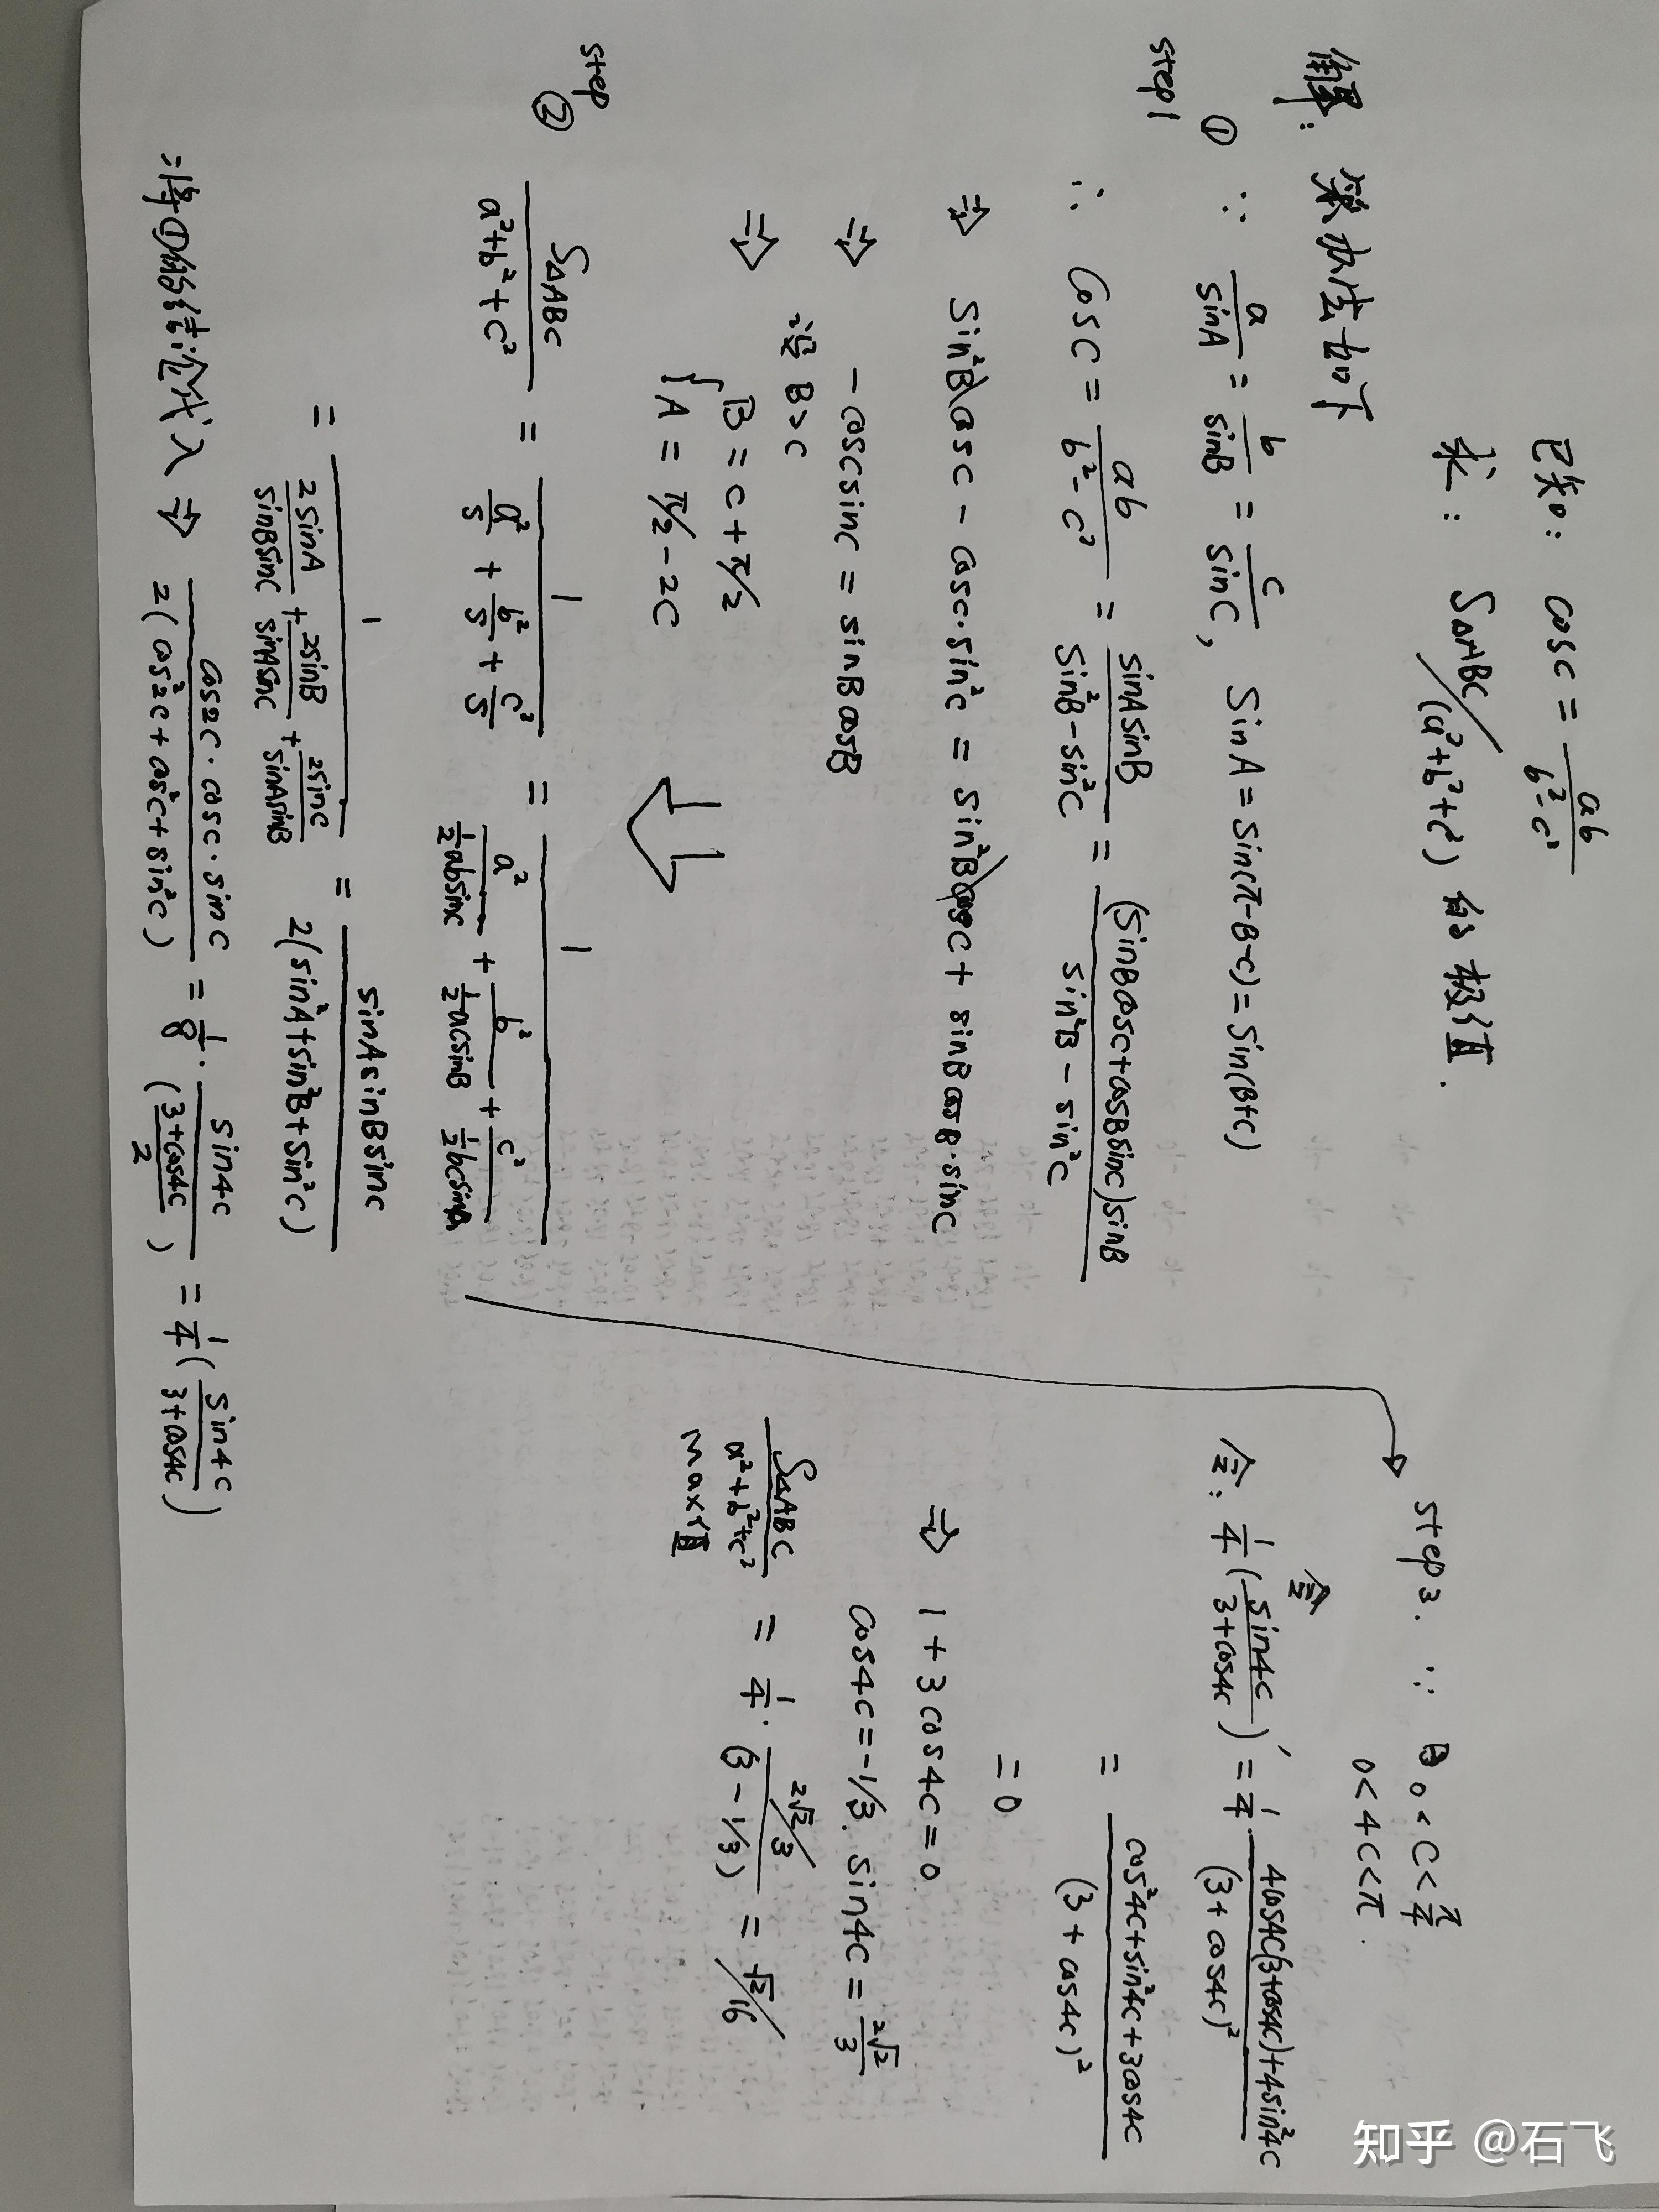 已知: cosC = ab/(b²-c²)
求: S△ABC/(a²+b²+c²) 的极值.
解: 案办法如下
step1 ① ∵ a/sinA = b/sinB = c/sinC, SinA = Sin(π-B-C) = Sin(B+C)
∴ CosC = ab/(b²-c²) = sinAsinB/(Sin²B-sin²C) = (SinBcosC+cosBsinC)sinB/(sin²B-sin²C)
⇒ Sin²B cosC - cosC·sin²C = Sin²B cosC + sinBcosB·sinC
⇒ -cosCsinC = sinBcosB
设 B>C
⇒ { B = C+π/2
A = π/2-2C
step ② S△ABC/(a²+b²+c²) = 1/(a²/S + b²/S + c²/S) = 1/(a²/(½absinC) + b²/(½acsinB) + c²/(½bcsinA))
= 1/(2sinA/(sinBsinC) + 2sinB/(sinAsinC) + 2sinC/(sinAsinB)) = sinAsinBsinC/(2(sin²A+sin²B+sin²C))
=将①的结论代入 ⇒ cos2C·cosC·sinC/(2(cos²2C+cos²C+sin²C)) = 1/8·sin4C/((3+cos4C)/2) = 1/4(sin4C/(3+cos4C))
step3. ∵ 0<C<π/4
0<4C<π.
令
令: 1/4(sin4C/(3+cos4C))′ = 1/4·(4cos4C(3+cos4C)+4sin²4C)/(3+cos4C)²
= (cos²4C+sin²4C+3cos4C)/(3+cos4C)²
= 0
⇒ 1+3cos4C=0
cos4C=-1/3. sin4C=2√2/3
S△ABC/(a²+b²+c²) = 1/4·(2√2/3)/(3-1/3) = √2/16
max值
知乎 @石飞